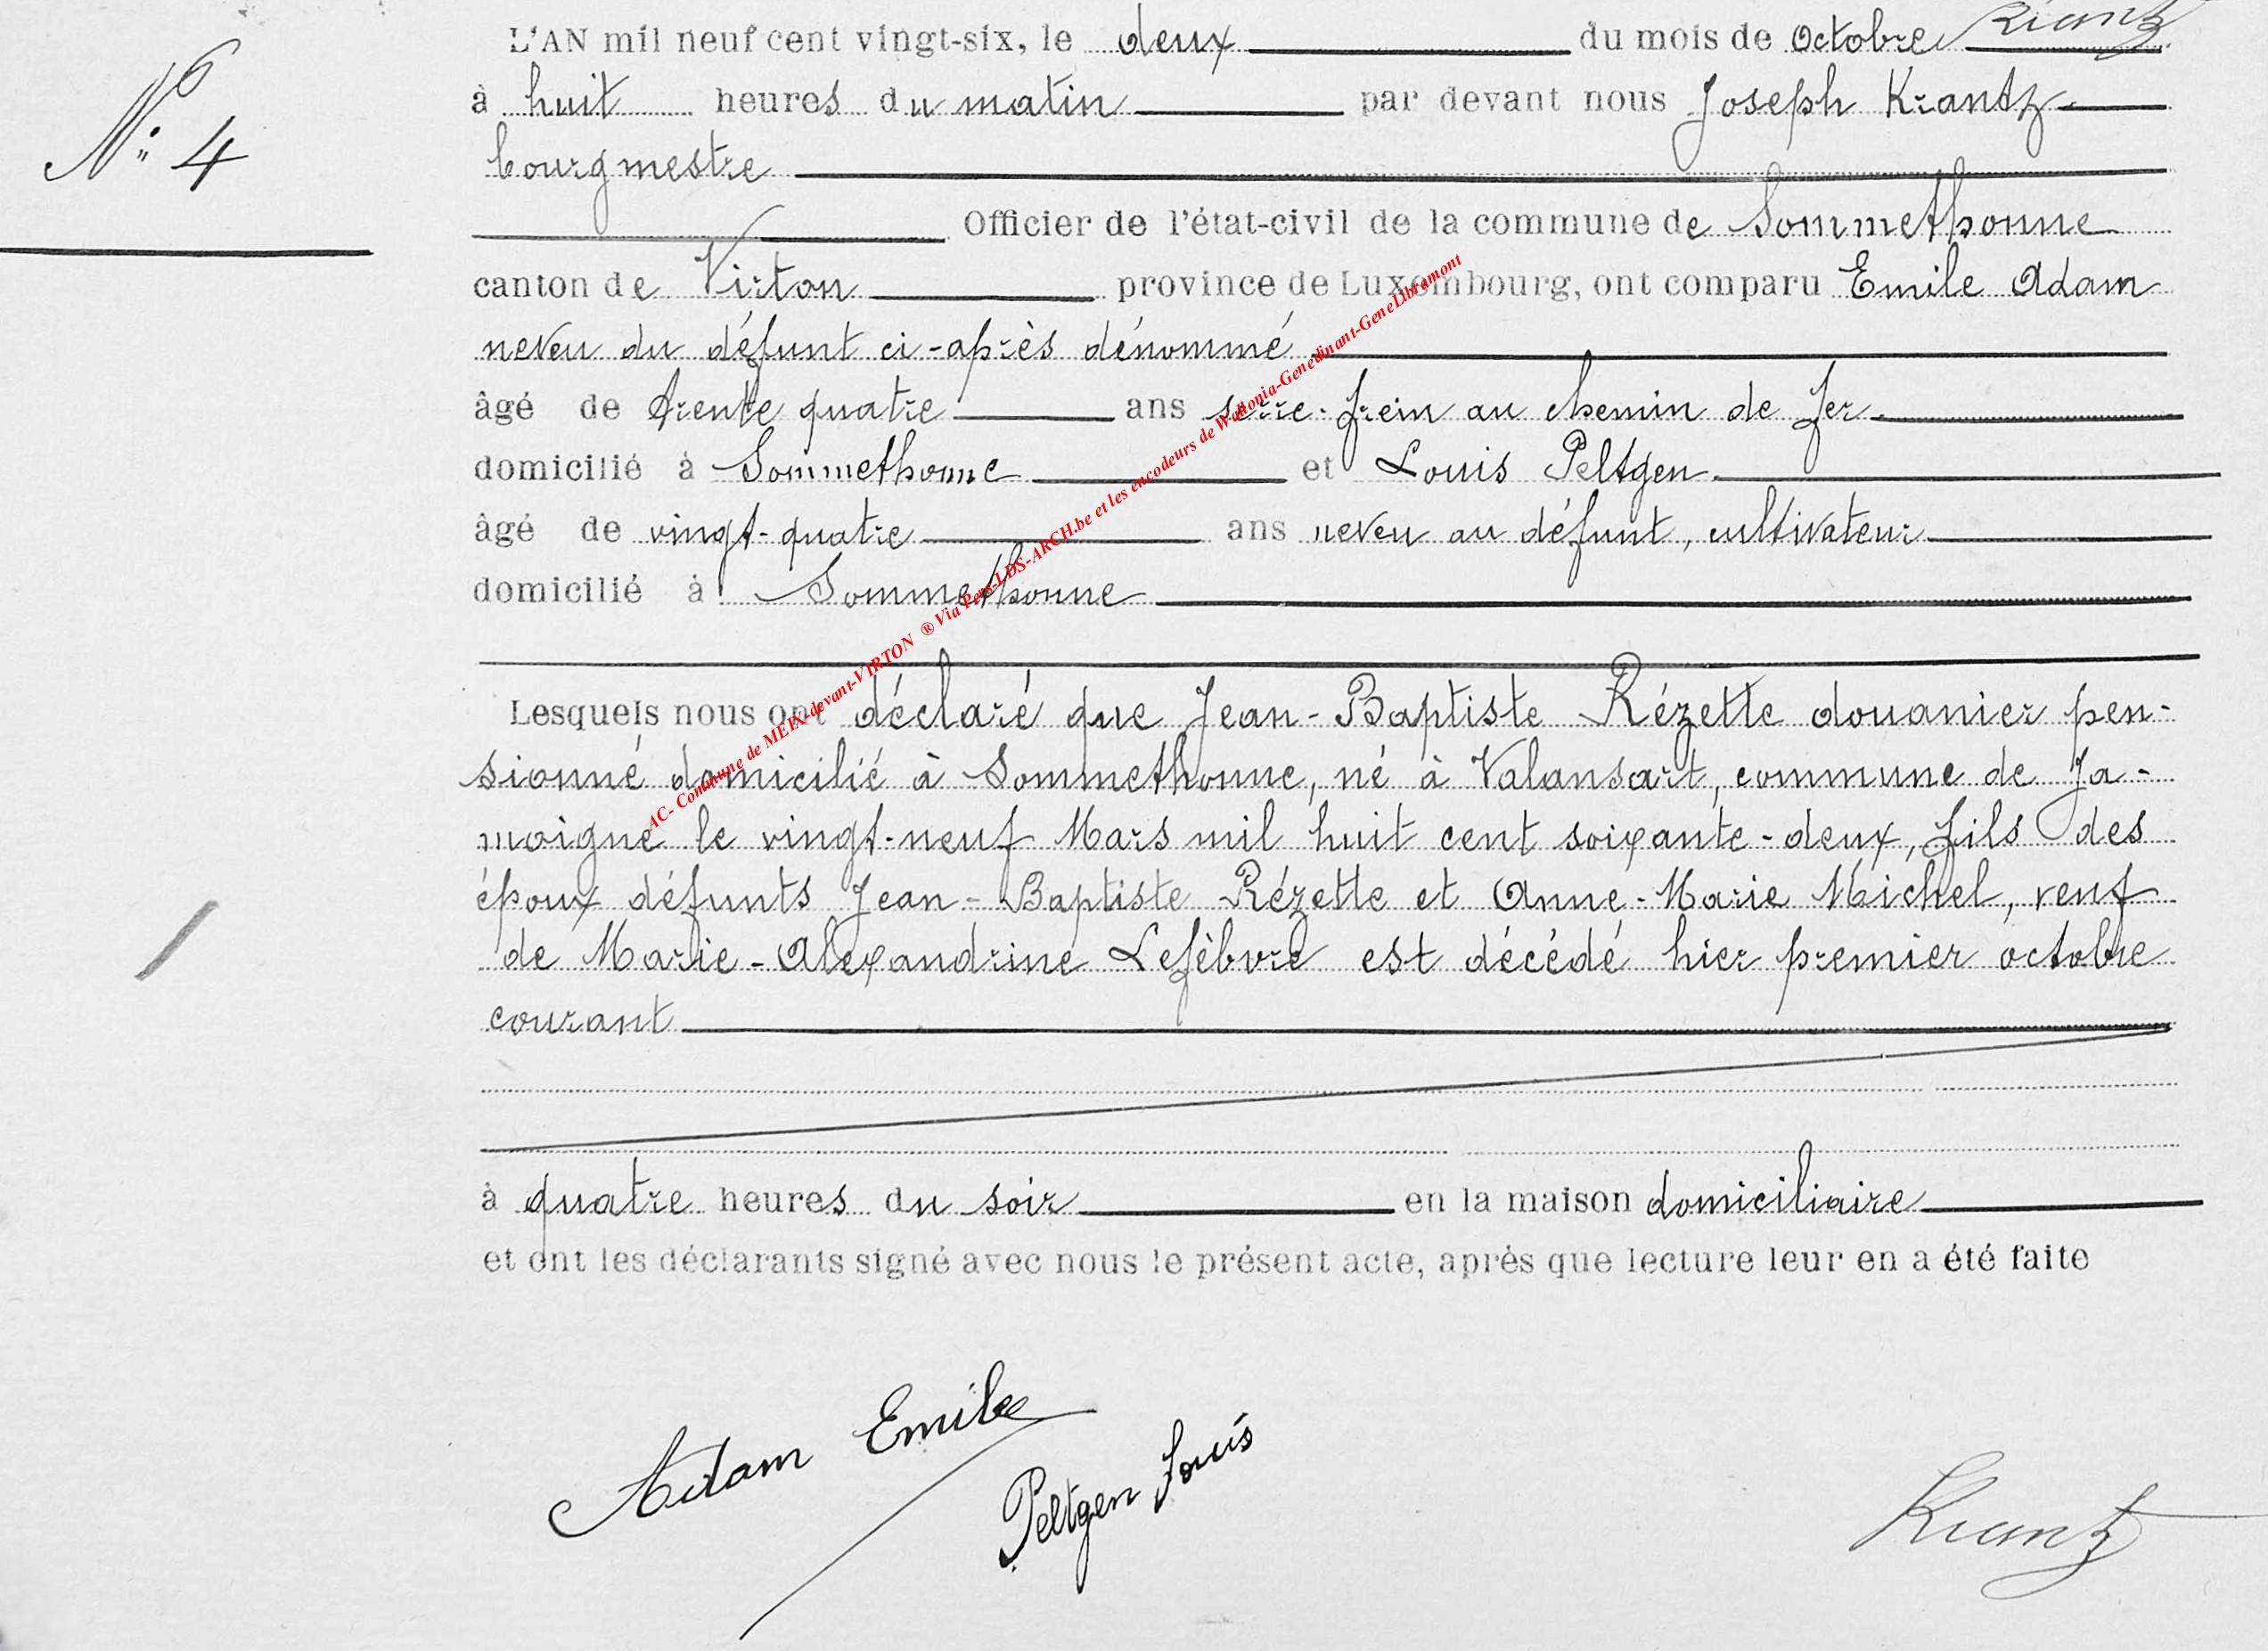 L'AN mil neuf cent vingt-six, le deux du mois de Octobre Krantz
N° 4
à huit heures du matin par devant nous Joseph Krantz
bourgmestre
Officier de l'état-civil de la commune de Sommethonne
canton de Virton province de Luxembourg, ont comparu Emile Adam
neveu du défunt ci-après dénommé
âgé de trente quatre ans serre-frein au chemin de fer
domicilié à Sommethonne et Louis Peltgen
âgé de vingt-quatre ans neveu au défunt, cultivateur
domicilié à Sommethonne
Lesquels nous ont déclaré que Jean-Baptiste Rézette douanier pen-
sionné domicilié à Sommethonne, né à Valansart, commune de Ja-
moigne le vingt-neuf Mars mil huit cent soixante-deux, fils des
époux défunts Jean-Baptiste Rézette et Anne-Marie Michel, veuf
de Marie-Alexandrine Lefèbvre est décédé hier premier octobre
courant
à quatre heures du soir en la maison domiciliaire
et ont les déclarants signé avec nous le présent acte, après que lecture leur en a été faite
Adam Emile
Peltgen Louis
Krantz
AC- Commune de MEIX-devant-VIRTON ® Via Pers-LDS-ARCH.be et les encodeurs de Wallonia-Genedinant-GeneLibramont